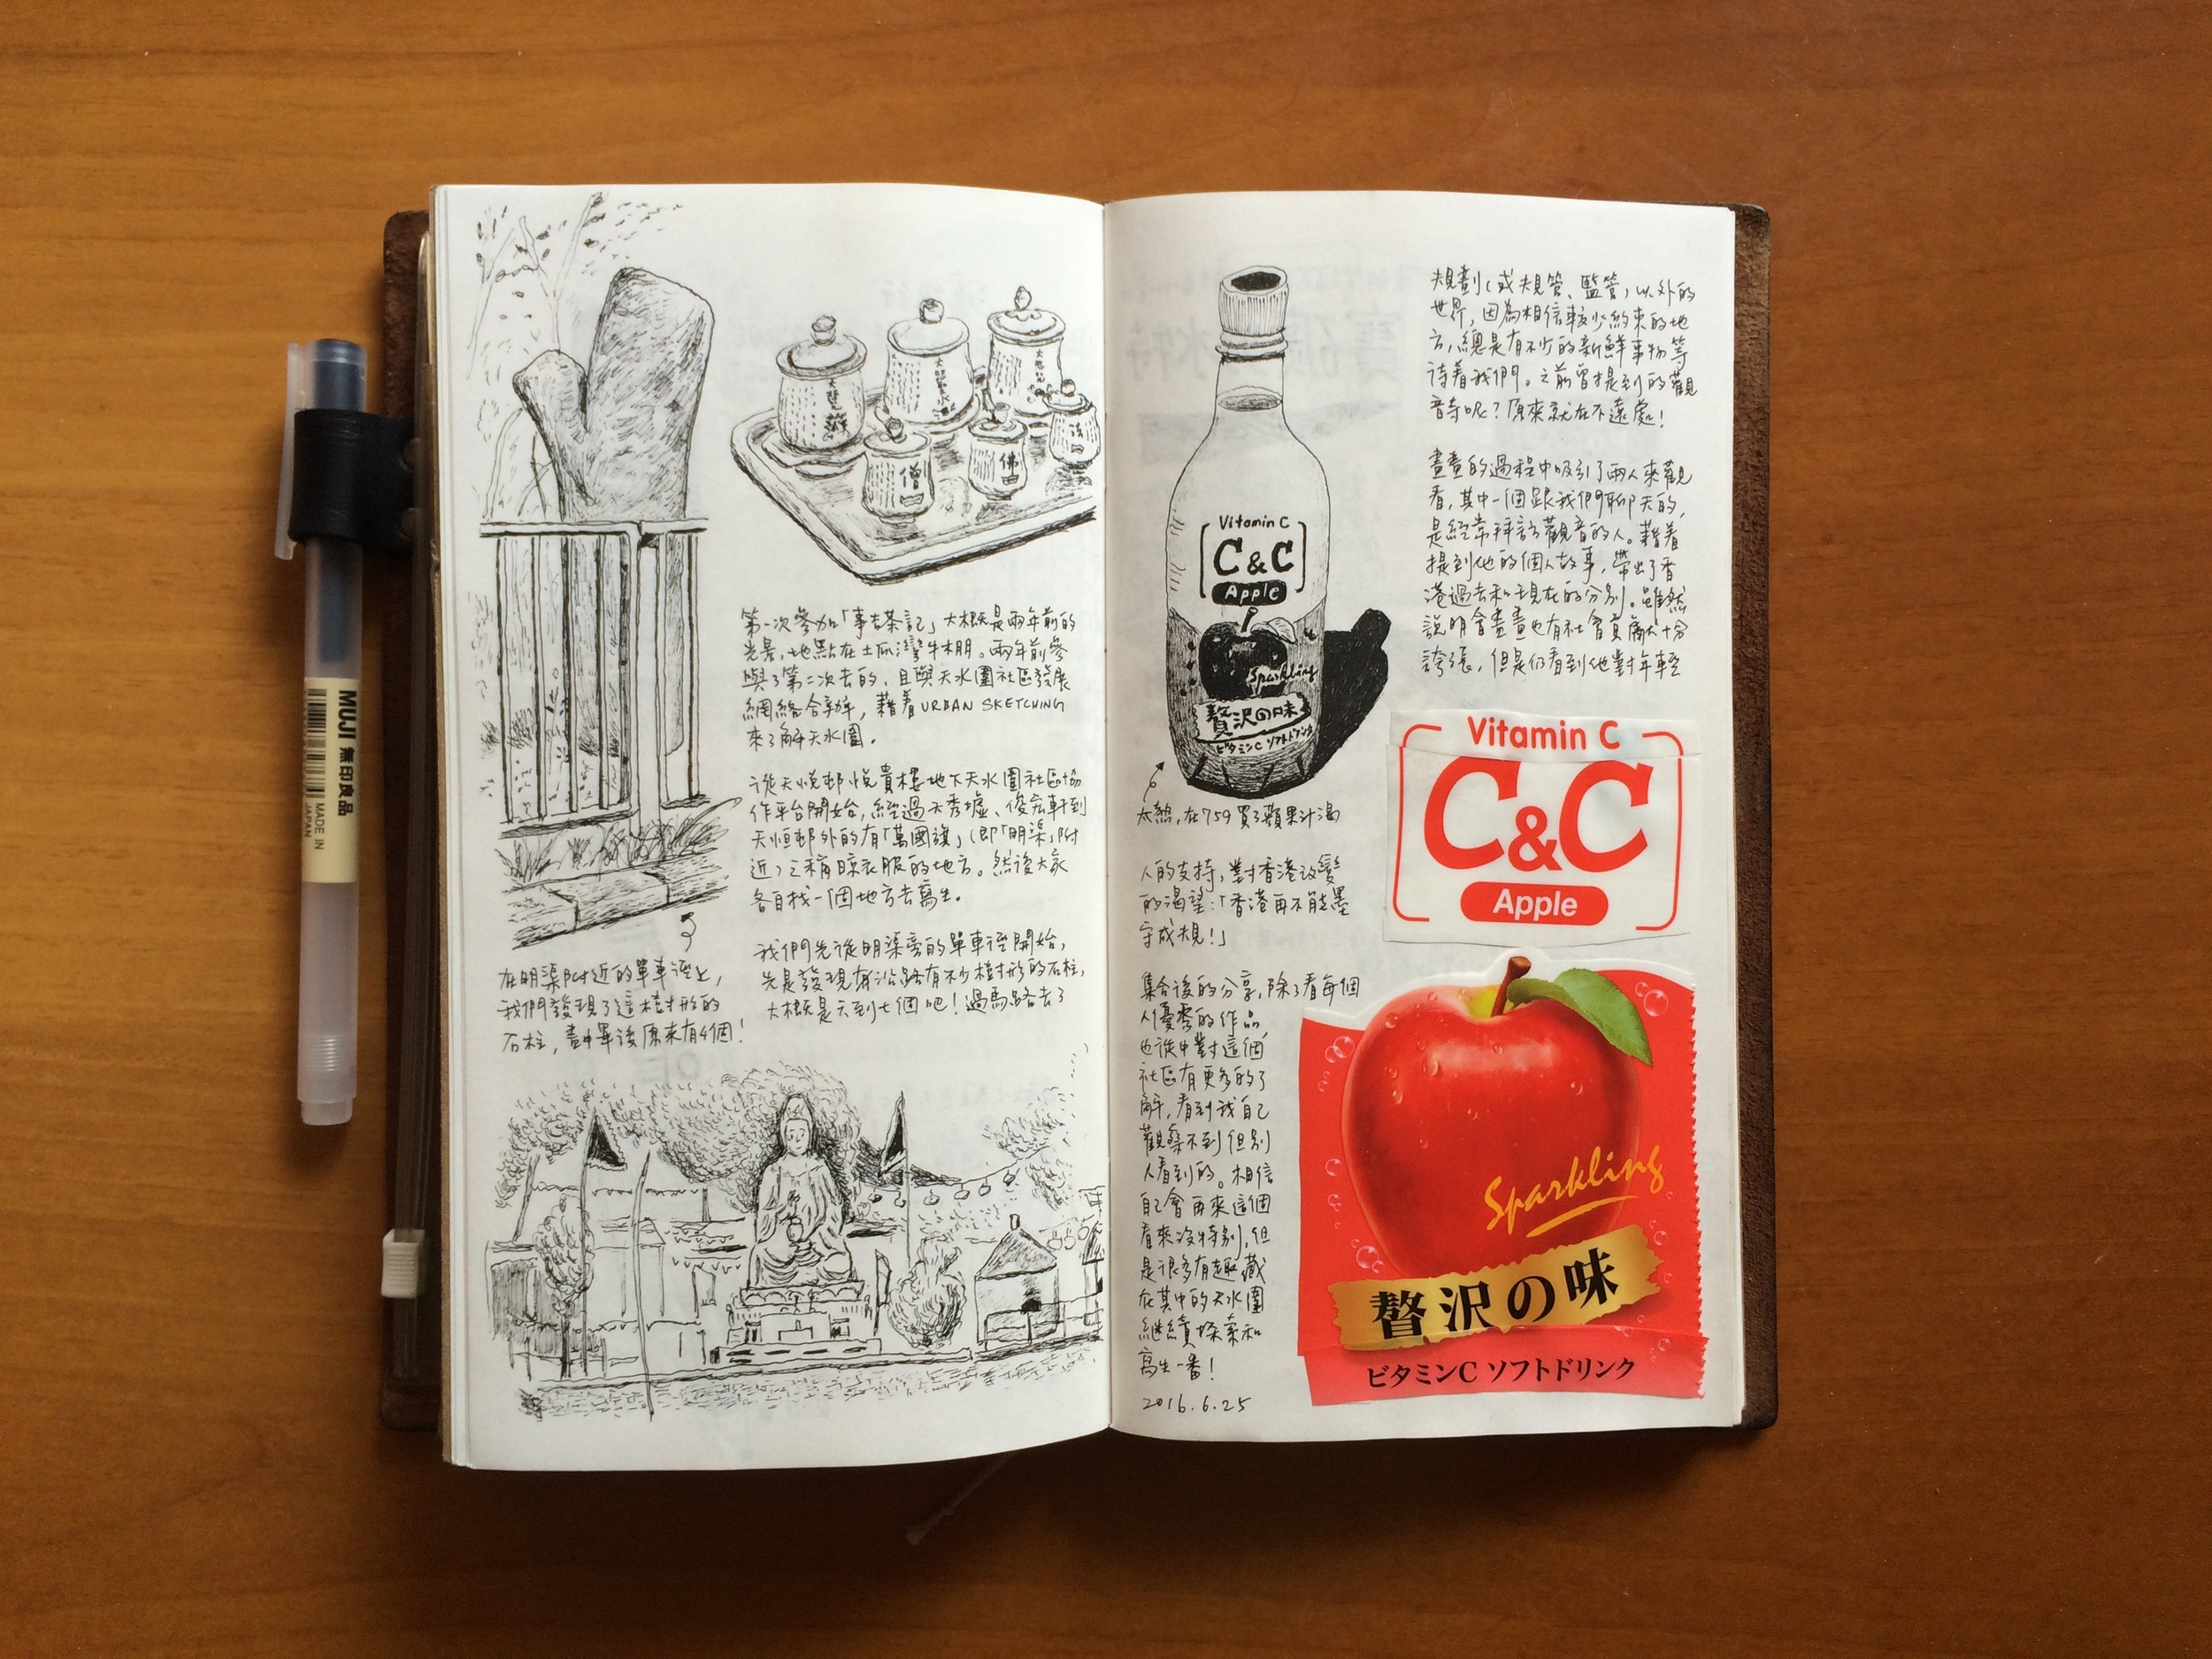 第一次參加「事吉茶記」大概是兩年前的
光景,地點在土瓜灣牛棚。兩年前參
與了第二次去的,且與天水圍社區發展
網絡合辦,藉着URBAN SKETCHING
來了解天水圍。
從天悅邨悅貴樓地下天水圍社區協
作平台開始,經過天秀墟、俊宏軒到
天恒邨外的有「萬國旗」(即「明渠」附
近)之稱晾衣服的地方。然後大家
各自找一個地方去寫生。
我們先從明渠旁的單車徑開始,
先是發現有沿路有不少樹形的石柱,
大概是六到七個吧!過馬路去了
在明渠附近的單車徑上,
我們發現了這樹形的
石柱,畫畢後原來有4個!
僧
佛
法
規劃(或規管、監管)以外的
世界,因為相信較少約束的地
方,總是有不少的新鮮事物等
待着我們。之前曾提到的觀
音寺呢?原來就在不遠處!
畫畫的過程中吸引了兩人來觀
看,其中一個跟我們聊天的,
是經常拜訪觀音的人。藉着
提到他的個人故事,帶出了香
港過去和現在的分別。雖然
說明會畫畫也有社會貢獻十分
誇張,但是仍看到他對年輕
Vitamin C
C&C
Apple
Sparkling
贅沢の味
ビタミンC ソフトドリンク
太熱,在759買了蘋果汁喝
人的支持,對香港改變
的渴望:「香港再不能墨
守成規!」
集合後的分享,除了看每個
人優秀的作品,
也從中對這個
社區有更多的了
解,看到我自己
觀察不到但別
人看到的。相信
自己會再來這個
看來沒特別,但
是很多有趣藏
在其中的天水圍
繼續探索和
寫生一番!
2016.6.25
Vitamin C
C&C
Apple
Sparkling
贅沢の味
ビタミンC ソフトドリンク
MUJI 無印良品
MADE IN
JAPAN